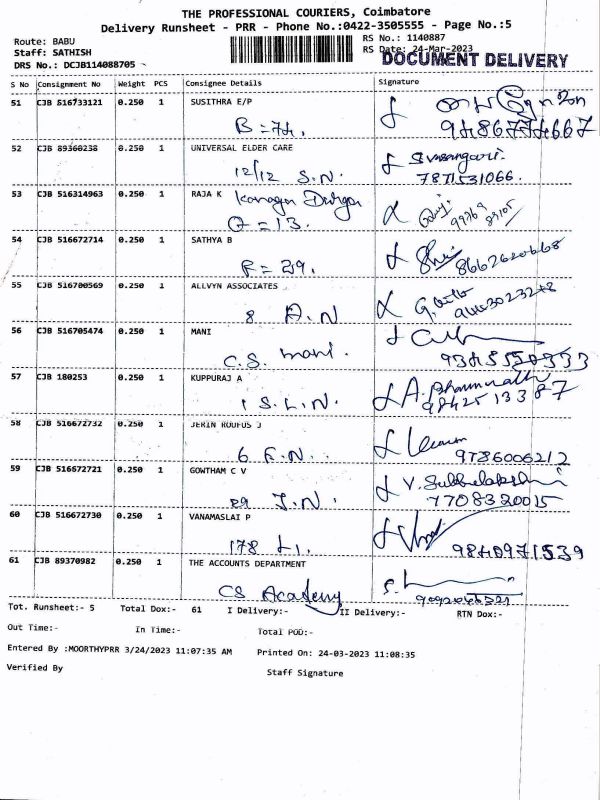 THE PROFESSIONAL COURIERS, Coimbatore
Delivery Runsheet - PRR - Phone No.:0422-3505555 - Page No.:5
Route: BABU
RS No.: 1140887
Staff: SATHISH
RS Date: 24-Mar-2023
DOCUMENT DELIVERY
DRS No.: DCJB114088705
S No Consignment No Weight PCS Consignee Details Signature
51 CJB 516733121 0.250 1 SUSITHRA E/P
B = 74.
9486774667
52 CJB 89360238 0.250 1 UNIVERSAL ELDER CARE
12/12 S.N.
7871531066.
53 CJB 516314963 0.250 1 RAJA K
Q = 13.
54 CJB 516672714 0.250 1 SATHYA B
8662620668
55 CJB 516700569 0.250 1 ALLVYN ASSOCIATES
8 A.N
56 CJB 516705474 0.250 1 MANI
C.S. mani.
57 CJB 180253 0.250 1 KUPPURAJ A
1 S.L.N.
9842513387
58 CJB 516672732 0.250 1 JERIN ROUFUS J
9786006212
59 CJB 516672721 0.250 1 GOWTHAM C V
V. Subbulakshmi
29 J.N.
7708320015
60 CJB 516672730 0.250 1 VANAMASLAI P
178 L1.
9840971539
61 CJB 89370982 0.250 1 THE ACCOUNTS DEPARTMENT
CS Academy
Tot. Runsheet:- 5 Total Dox:- 61 I Delivery:- II Delivery:- RTN Dox:-
Out Time:- In Time:- Total POD:-
Entered By :MOORTHYPRR 3/24/2023 11:07:35 AM Printed On: 24-03-2023 11:08:35
Verified By Staff Signature